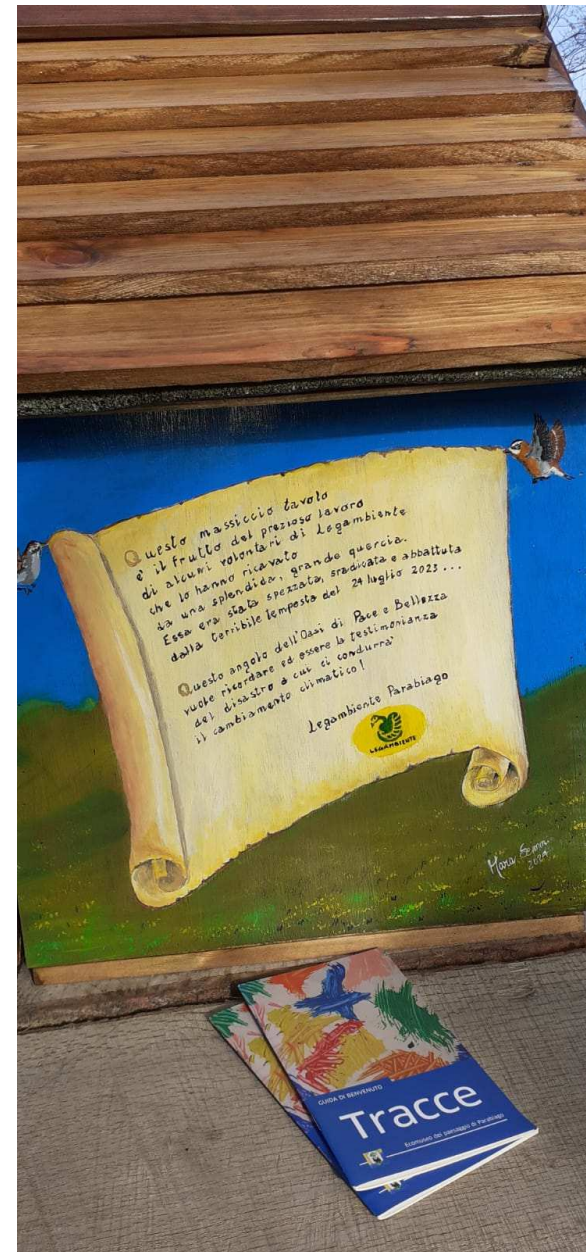 Questo massiccio tavolo
è il frutto del prezioso lavoro
di alcuni volontari di Legambiente
che lo hanno ricavato
da una splendida, grande quercia.
Essa era stata spezzata, sradicata e abbattuta
dalla terribile tempesta del 24 luglio 2023 ...
Questo angolo dell'Oasi di Pace e Bellezza
vuole ricordare ed essere la testimonianza
del disastro a cui ci condurrà
il cambiamento climatico!
Legambiente Parabiago
LEGAMBIENTE
Mara
2024
GUIDA DI BENVENUTO
Tracce
Ecomuseo del paesaggio di Parabiago